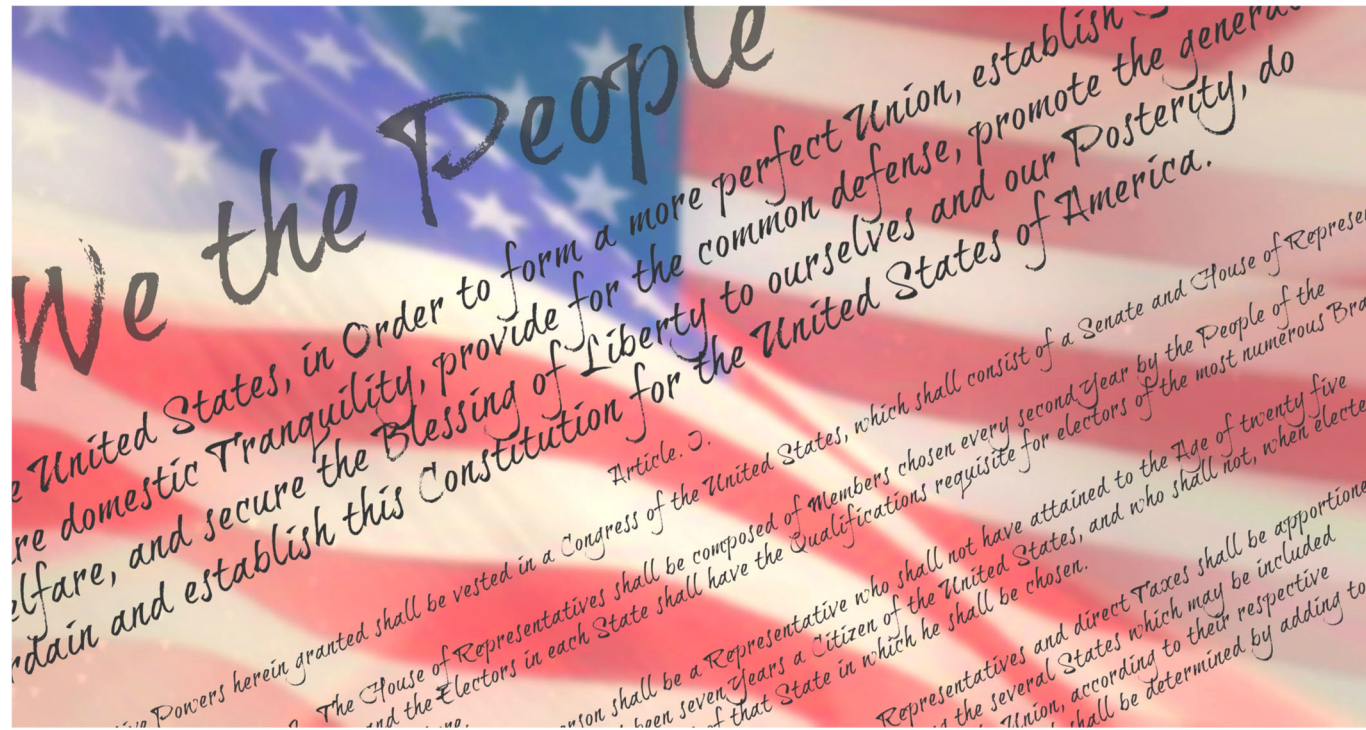 We the People
United States, in Order to form a more perfect Union, establish
domestic Tranquility, provide for the common defense, promote the general
and secure the Blessing of Liberty to ourselves and our Posterity, do
and establish this Constitution for the United States of America.
Article. I.
Powers herein granted shall be vested in a Congress of the United States, which shall consist of a Senate and House of
The House of Representatives shall be composed of Members chosen every second Year by the People of the
and the Electors in each State shall have the Qualifications requisite for electors of the most numerous
shall be a Representative who shall not have attained to the Age of twenty five
been seven Years a Citizen of the United States, and who shall not, when
of that State in which he shall be chosen.
Representatives and direct Taxes shall be
the several States which may be included
Union, according to their respective
shall be determined by adding to